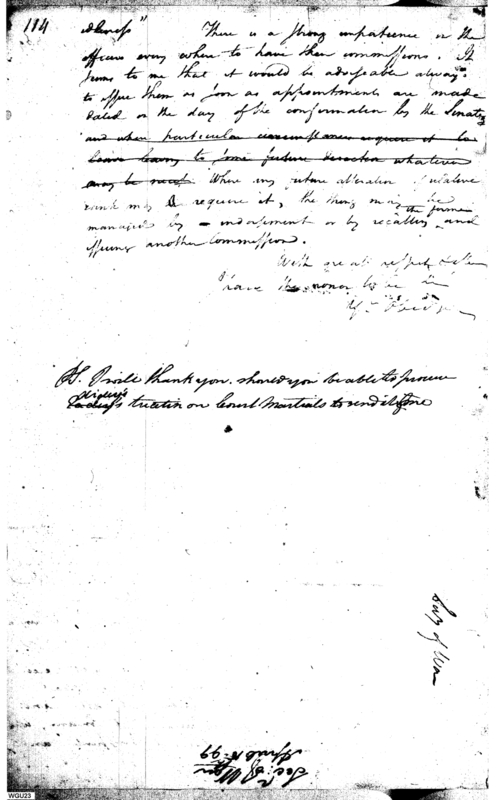 184
idleness"     There is a strong impatience in the
officers every where to have their commissions. It
seems to me that it would be adviseable always
to issue them as soon as appointments are made
dated on the day of the confirmation by the Senate
and when particular circumstances require it to
leave to some future direction whatever
may be next Where any future alteration of relative
rank may require it, the thing may be
managed by indorsement or by recalling the former and
issuing another Commission.
With great respect &
I have the honor to be
Yr Obed
PS. I will thank you. should you be able to procure
treatise on Court Martials to send it me
Secy of War
Sec: of War
April 99
WGU23